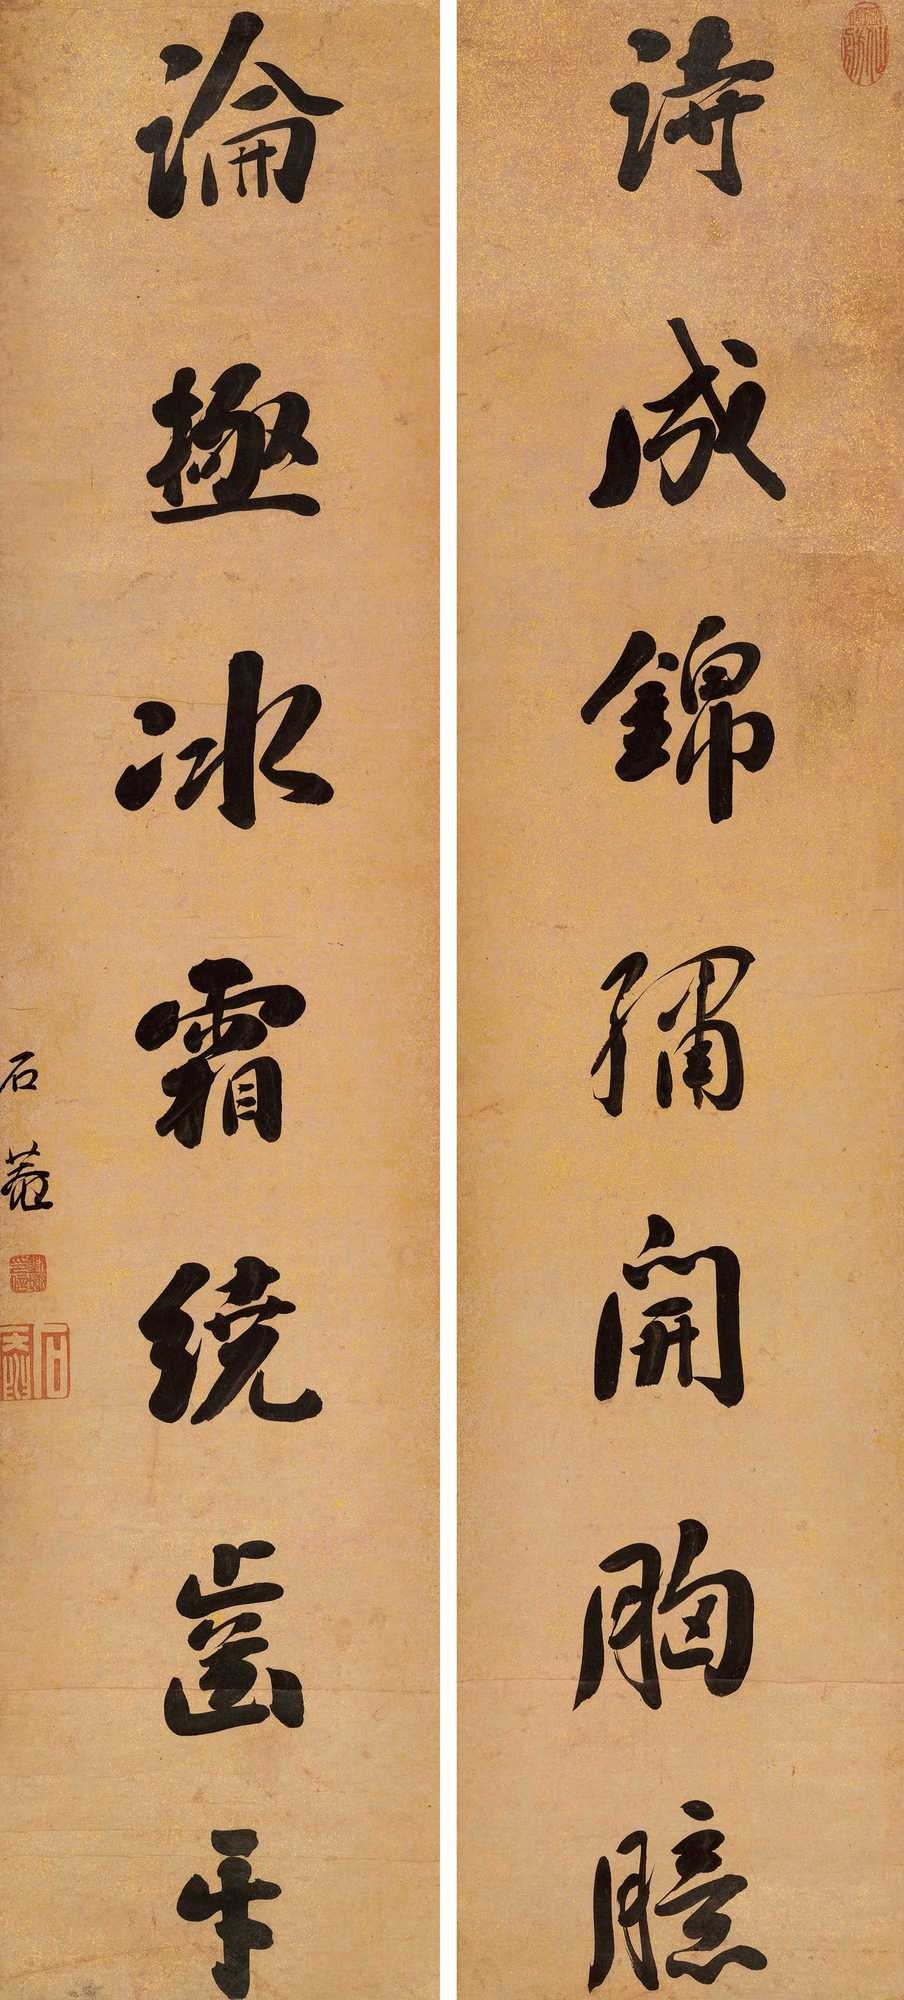 詩成錦繡開胸臆
論極冰霜繞齒牙
石菴